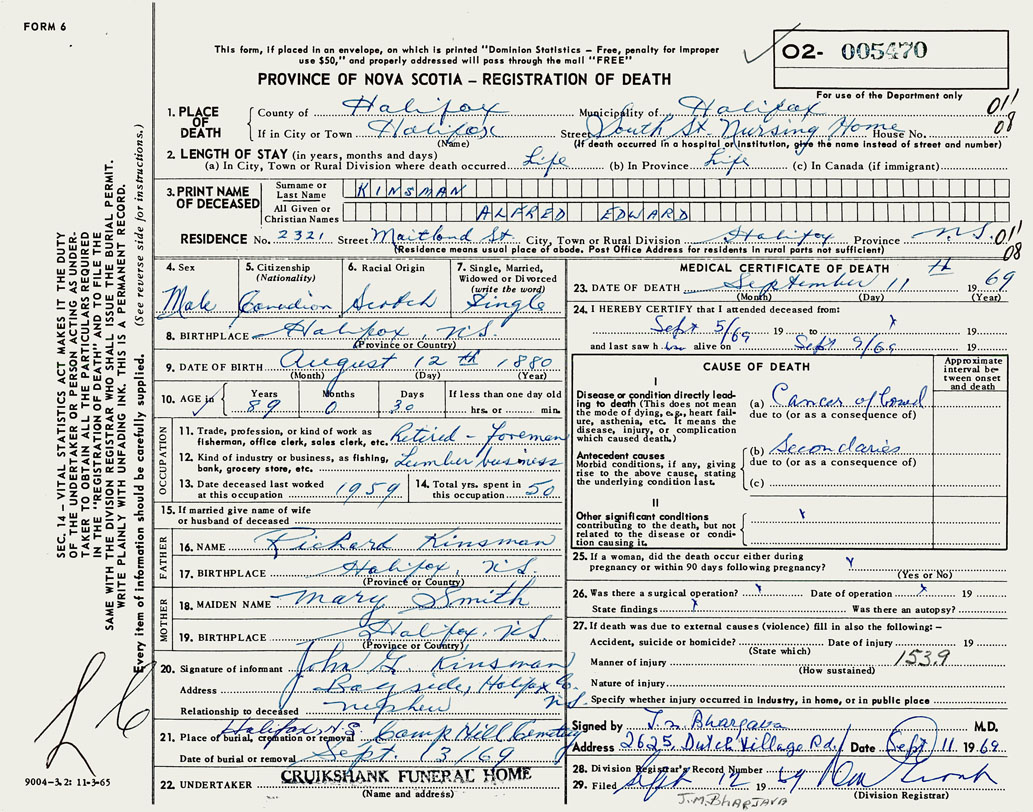 FORM 6
This form, if placed in an envelope, on which is printed "Dominion Statistics – Free, penalty for improper
use $50," and properly addressed will pass through the mail "FREE"
O2- 005470
PROVINCE OF NOVA SCOTIA – REGISTRATION OF DEATH
For use of the Department only
1. PLACE OF DEATH
County of Halifax Municipality of Halifax 011
If in City or Town Halifax Street South St. Nursing Home House No. 08
(Name) (If death occurred in a hospital or institution, give the name instead of street and number)
2. LENGTH OF STAY (in years, months and days)
(a) In City, Town or Rural Division where death occurred Life (b) In Province Life (c) In Canada (if immigrant)
3. PRINT NAME OF DECEASED
Surname or Last Name KINSMAN
All Given or Christian Names ALFRED EDWARD
RESIDENCE No. 2321 Street Maitland St. City, Town or Rural Division Halifax Province N.S. 011
(Residence means usual place of abode. Post Office Address for residents in rural parts not sufficient) 08
4. Sex
Male
5. Citizenship
(Nationality)
Canadian
6. Racial Origin
Scotch
7. Single, Married,
Widowed or Divorced
(write the word)
Single
8. BIRTHPLACE Halifax, N.S.
(Province or Country)
9. DATE OF BIRTH August 12th 1880
(Month) (Day) (Year)
10. AGE in Years Months Days If less than one day old
89 0 30 hrs. or min.
OCCUPATION
11. Trade, profession, or kind of work as
fisherman, office clerk, sales clerk, etc. Retired - Foreman
12. Kind of industry or business, as fishing,
bank, grocery store, etc. Lumber business
13. Date deceased last worked
at this occupation 1959
14. Total yrs. spent in
this occupation 50
15. If married give name of wife
or husband of deceased
FATHER
16. NAME Richard Kinsman
17. BIRTHPLACE Halifax, N.S.
(Province or Country)
MOTHER
18. MAIDEN NAME Mary Smith
19. BIRTHPLACE Halifax, N.S.
(Province or Country)
20. Signature of informant John G. Kinsman
Address Bayside, Halifax Co. N.S.
Relationship to deceased nephew
Halifax, N.S.
21. Place of burial, cremation or removal Camp Hill Cemetery
Date of burial or removal Sept. 13/69
22. UNDERTAKER CRUIKSHANK FUNERAL HOME
(Name and address)
MEDICAL CERTIFICATE OF DEATH
23. DATE OF DEATH September 11th 1969
(Month) (Day) (Year)
24. I HEREBY CERTIFY that I attended deceased from:
Sept 5/69 19 to 19
and last saw him alive on Sept 9/69 19
CAUSE OF DEATH
Approximate
interval be-
tween onset
and death
I
Disease or condition directly lead-
ing to death (This does not
mean the mode of dying, e.g., heart fail-
ure, asthenia, etc. It means the
disease, injury, or complication
which caused death.)
(a) Cancer of bowel
due to (or as a consequence of)
Antecedent causes
Morbid conditions, if any, giving
rise to the above cause, stating
the underlying condition last.
(b) Secondaries
due to (or as a consequence of)
(c)
II
Other significant conditions
contributing to the death, but not
related to the disease or condi-
tion causing it.
25. If a woman, did the death occur either during
pregnancy or within 90 days following pregnancy?
(Yes or No)
26. Was there a surgical operation? Date of operation 19
State findings Was there an autopsy?
27. If death was due to external causes (violence) fill in also the following: –
Accident, suicide or homicide? Date of injury 19
(State which)
Manner of injury 153.9
(How sustained)
Nature of injury
Specify whether injury occurred in industry, in home, or in public place
Signed by J. M. Bhargava M.D.
Address 2625 Dutch Village Rd. Date Sept. 11 1969
28. Division Registrar's Record Number
29. Filed Sept 12 1969
(Division Registrar)
J.M. BHARJAVA
SEC. 14 – VITAL STATISTICS ACT MAKES IT THE DUTY
OF THE UNDERTAKER OR PERSON ACTING AS UNDER-
TAKER TO OBTAIN ALL THE PARTICULARS REQUIRED
IN THE "REGISTRATION OF DEATH" AND TO FILE THE
SAME WITH THE DIVISION REGISTRAR WHO SHALL ISSUE THE BURIAL PERMIT.
WRITE PLAINLY WITH UNFADING INK. THIS IS A PERMANENT RECORD.
Every item of information should be carefully supplied. (See reverse side for instructions.)
9004-3.2: 11-3-65